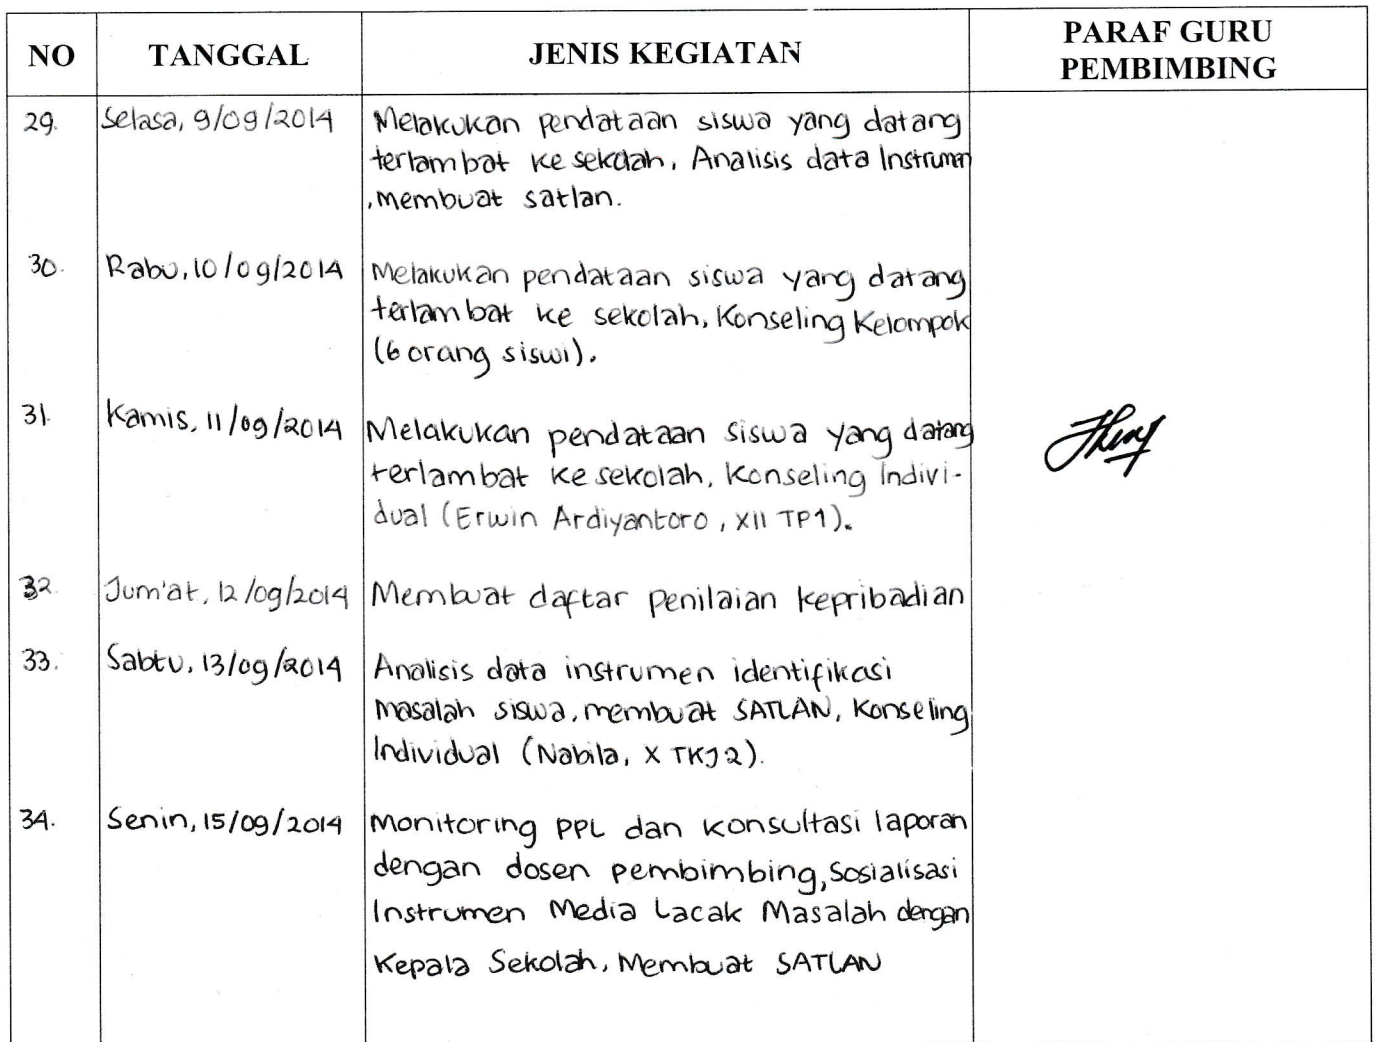 NO TANGGAL JENIS KEGIATAN PARAF GURU PEMBIMBING
29. Selasa, 9/09/2014 Melakukan pendataan siswa yang datang
terlambat ke sekolah, Analisis data Instrumen
, membuat satlan.
30. Rabu, 10/09/2014 Melakukan pendataan siswa yang datang
terlambat ke sekolah, Konseling Kelompok
(6 orang siswi).
31. Kamis, 11/09/2014 Melakukan pendataan siswa yang datang
terlambat ke sekolah, Konseling Indivi-
dual (Erwin Ardiyantoro, XII TP1).
32. Jum'at, 12/09/2014 Membuat daftar penilaian kepribadian
33. Sabtu, 13/09/2014 Analisis data instrumen identifikasi
masalah siswa, membuat SATLAN, Konseling
Individual (Nabila, X TKJ2).
34. Senin, 15/09/2014 Monitoring PPL dan konsultasi laporan
dengan dosen pembimbing, Sosialisasi
Instrumen Media Lacak Masalah dengan
Kepala Sekolah, Membuat SATLAN